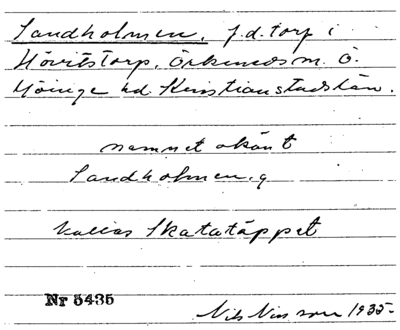 Sandholmen, f.d. torp i
Hövitstorp, Örkeneds sn. Ö.
Göinge hd Kristianstads län.
namnet okänt
Sandholmen. q
kallas Skatatäppet
Nr 5435
Nils Nilsson 1935-